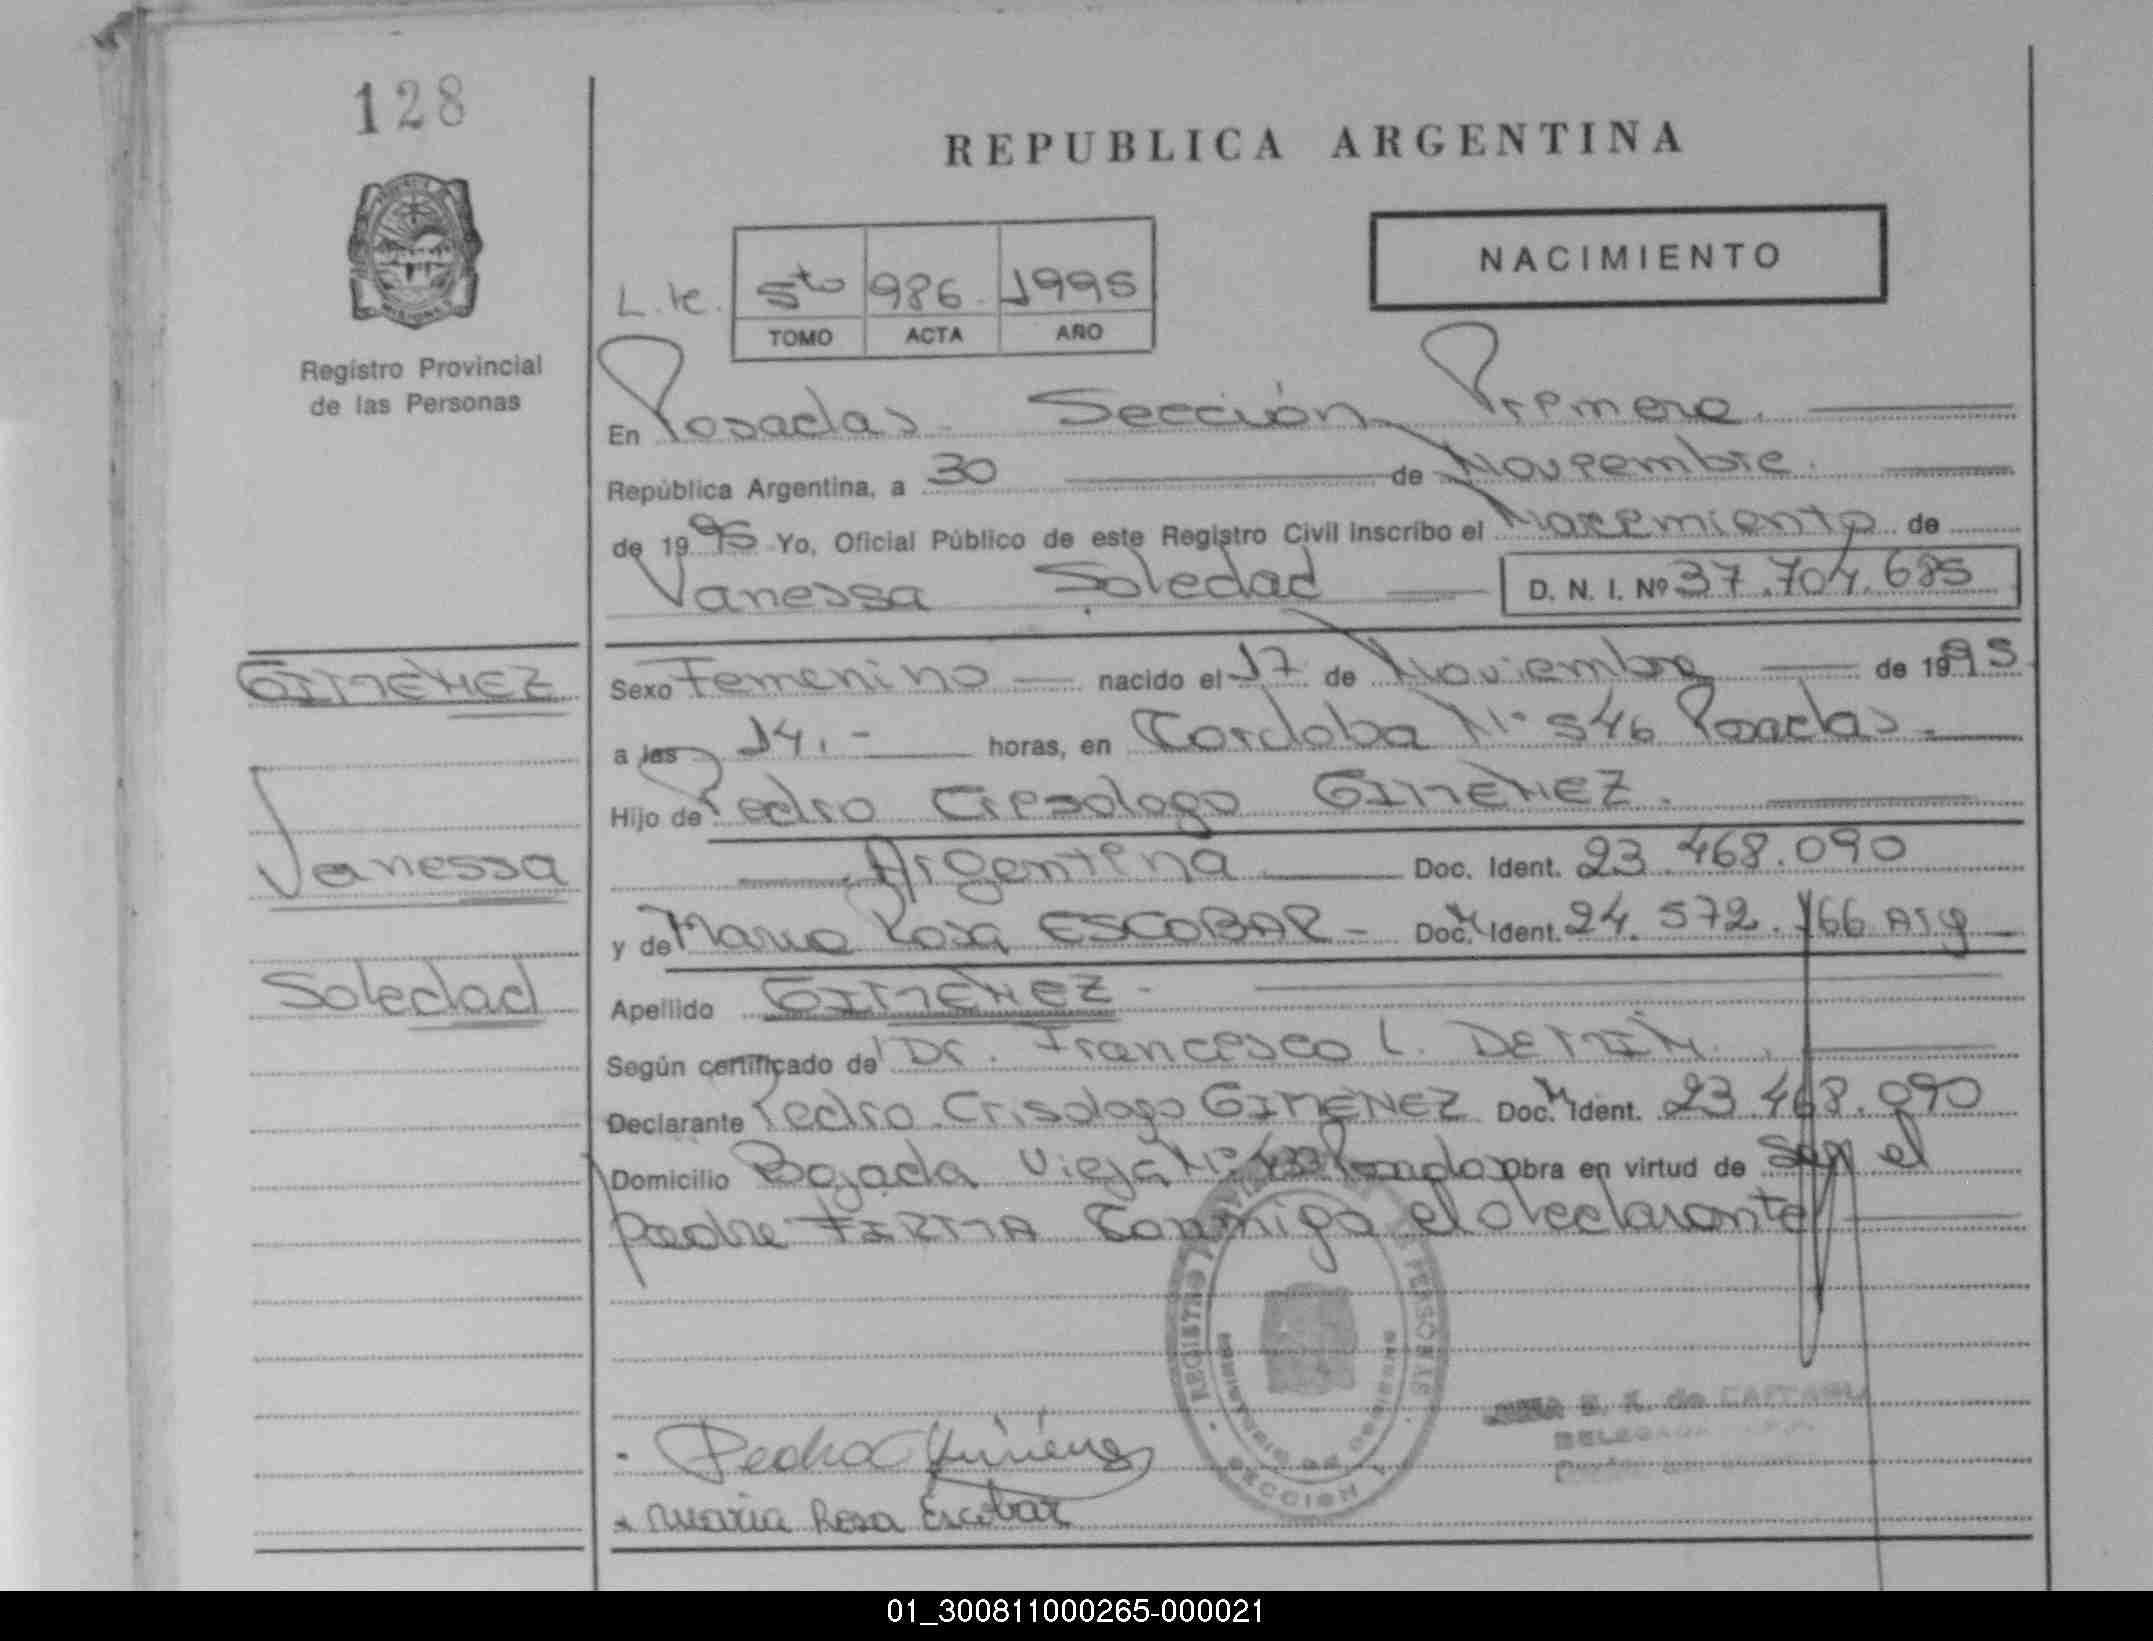 128
REPUBLICA ARGENTINA
NACIMIENTO
5to 986. 1995
TOMO ACTA AÑO
Registro Provincial
de las Personas
En Posadas Sección Primera.
República Argentina, a 30 de Noviembre.
de 1995 Yo, Oficial Público de este Registro Civil inscribo el Nacimiento de
Vanessa Soledad D. N. I. Nº 37.704.685
GIMENEZ
Vanessa
Soledad
Sexo Femenino nacido el 17 de Noviembre de 1995
a las 14.- horas, en Cordoba Nº 546 Posadas.-
Hijo de Pedro Crisologo GIMENEZ.
Argentina Doc. Ident. 23.468.090
y de Maria Rosa ESCOBAR- Doc. Ident. 24.572.166 Arg
Apellido GIMENEZ-
Según certificado de Dr. Francisco L.
Declarante Pedro Crisologo GIMENEZ Doc. Ident. 23.468.090
Domicilio Bajada Vieja Posadas Obra en virtud de ser el
padre FIRMA Conmigo el declarante
REGISTRO PERSONAS
MISIONES
SECCION 1
de
DELEGADA
Pedro C Gimenez
Maria Rosa Escobar
01_300811000265-000021